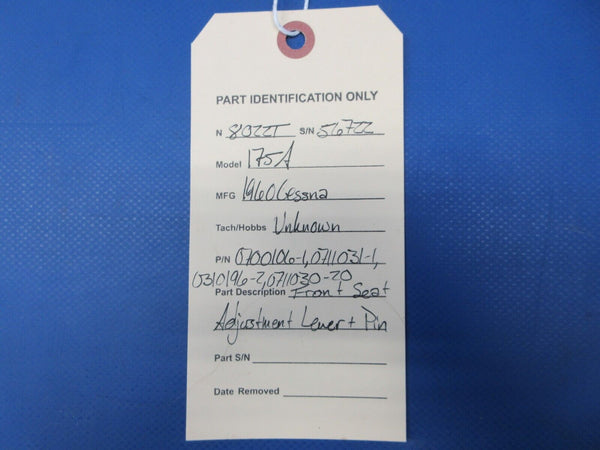 PART IDENTIFICATION ONLY
N 8022T S/N 56722
Model 175A
MFG 1960 Cessna
Tach/Hobbs Unknown
P/N 0700106-1, 0711031-1,
0310196-2, 0711030-20
Part Description Front Seat
Adjustment Lever + Pin
Part S/N
Date Removed